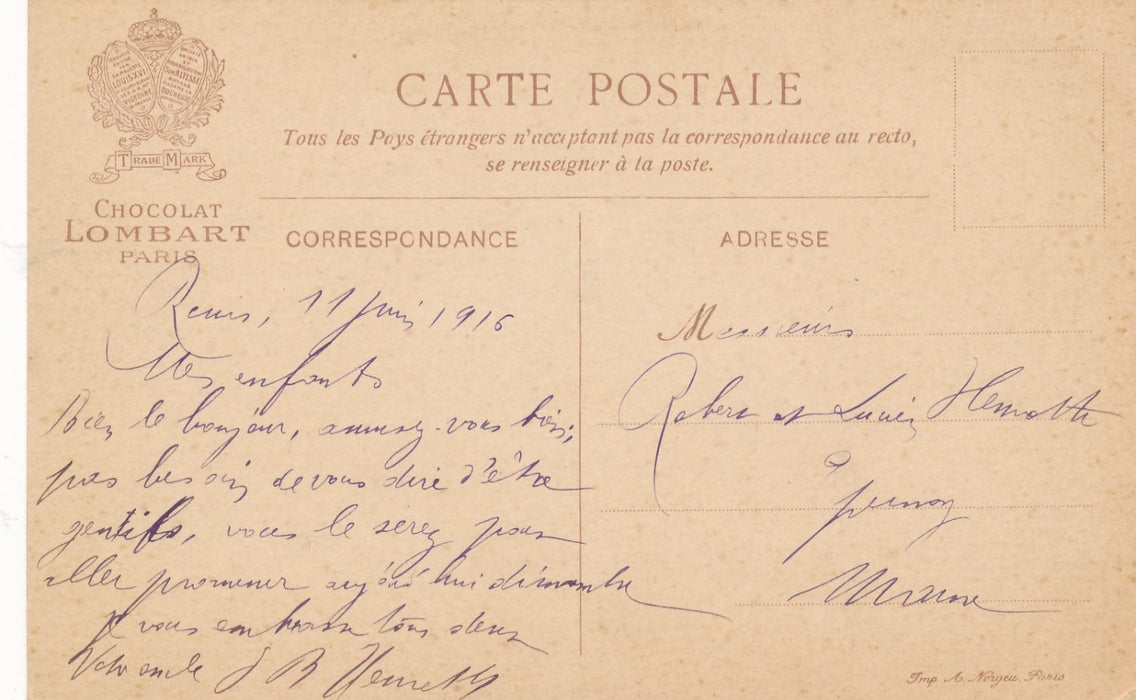 LOUIS XVI
VICTOIRE
SON ALTESSE
DUCHESSE
TRADE MARK
CHOCOLAT
LOMBART
PARIS
CARTE POSTALE
Tous les Pays étrangers n'acceptant pas la correspondance au recto,
se renseigner à la poste.
CORRESPONDANCE
Reims, 11 juin 1916
Mes enfants
Bien le bonjour, amusez-vous bien,
pas besoin de vous dire d'être
gentils, vous le serez pour
aller promener aujourd'hui dimanche
je vous embrasse tous deux
Votre oncle J B
ADRESSE
Messieurs
Robert et Lucien
Marne
Imp A. Norgeu. Paris